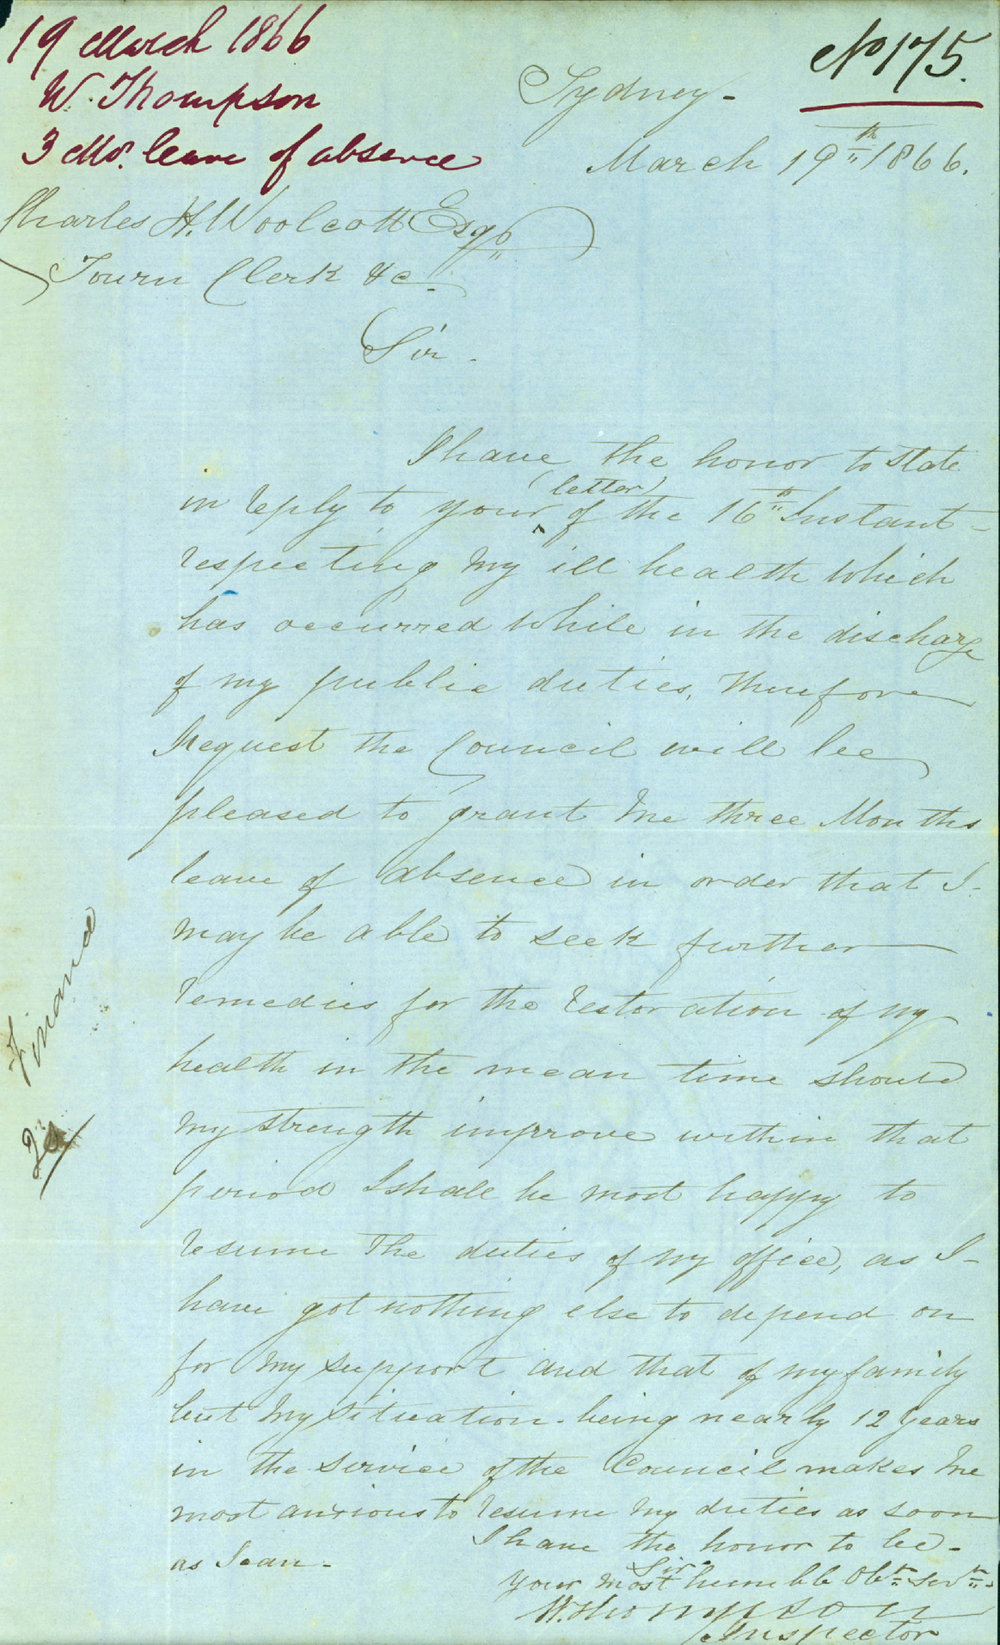 19 March 1866
W. Thompson
3 Mos. leave of absence
No 175.
Sydney -
March 19th 1866.
Charles H. Woolcott Esqr
Town Clerk &c.
Sir -
I have the honor to State
in reply to your (letter) of the 16th Instant -
respecting My ill health Which
has occurred While in the discharge
of my public duties, Therefore
Request the Council will be
pleased to grant Me three Months
leave of absence in order that I -
may be able to seek further
remedies for the restoration of my
health in the mean time should
My strength improve within that
period I shall be most happy to
resume The duties of my office, as I -
have got nothing else to depend on
for My support and that of my family
but My Situation - being nearly 12 years
in the Service of the Council makes Me
most anxious to resume My duties as soon
as I can -
I have the honor to be -
Sir
your most humble Obt. Servt.
W. Thompson
Inspector
Finance